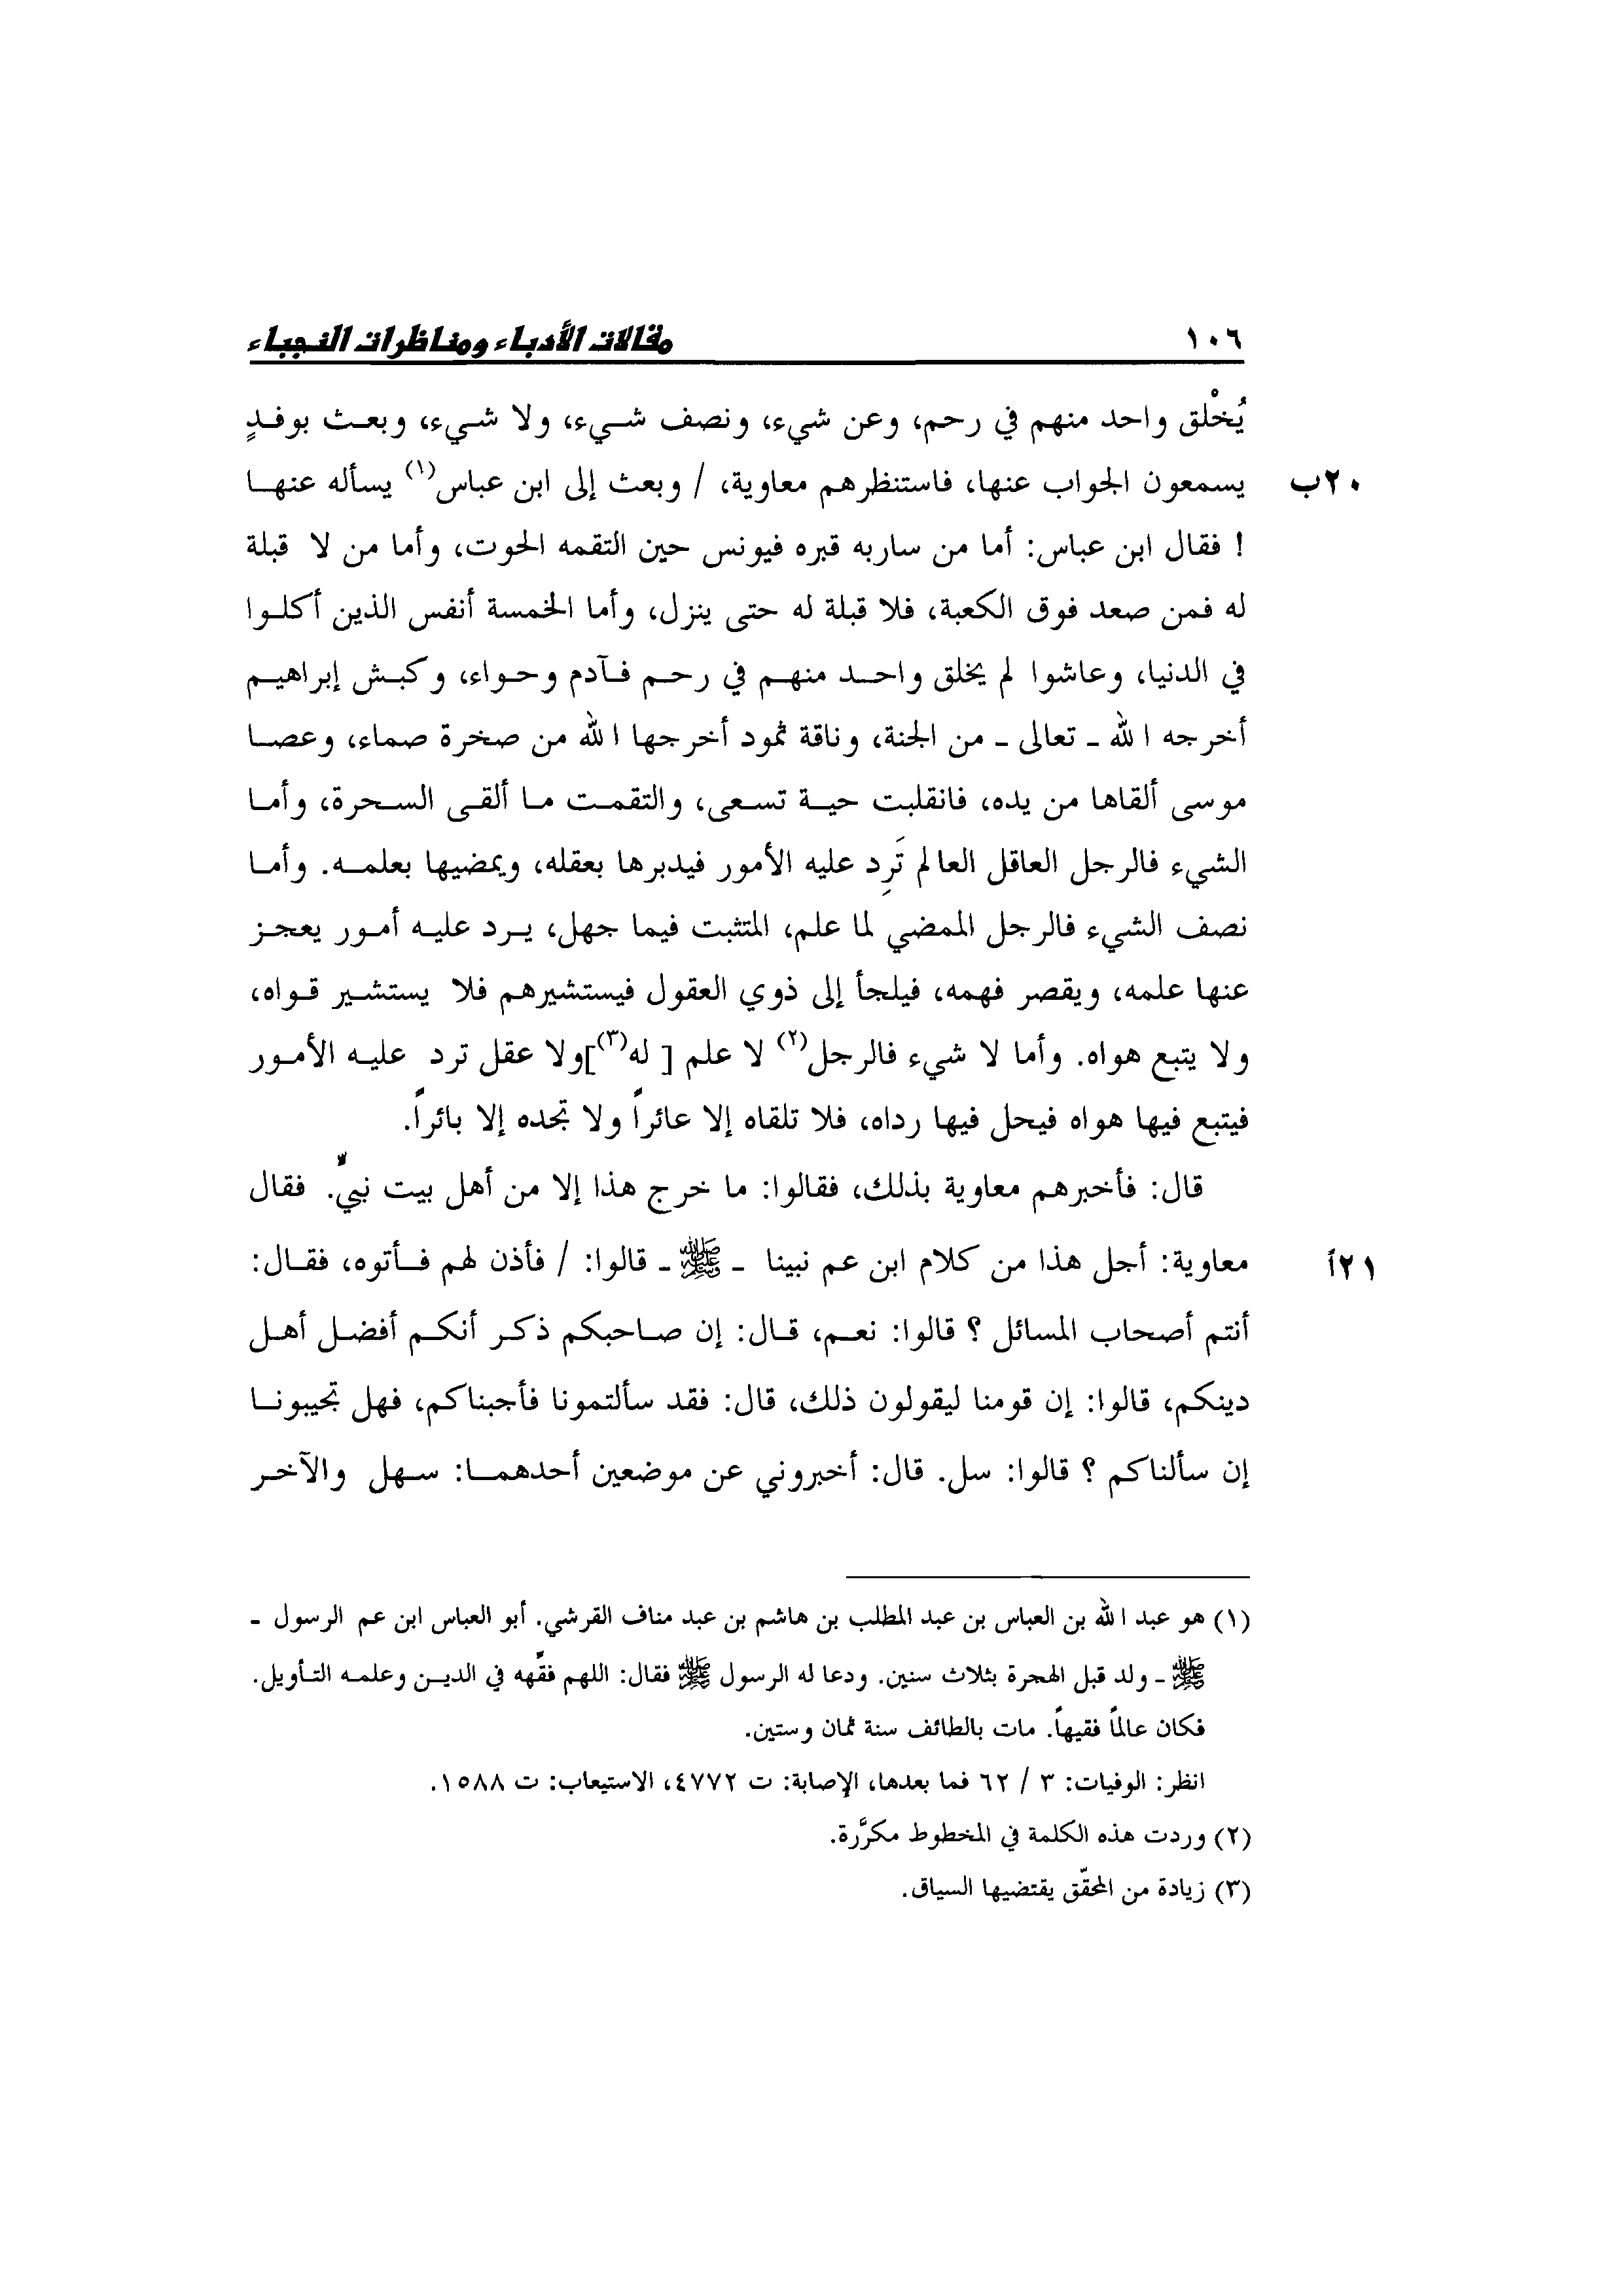 ١٠٦ مقالات الأدباء ومناظرات النجباء
يُخْلق واحد منهم في رحم، وعن شيء، ونصف شـيء، ولا شـيء، وبعـث بوفـدٍ
٢٠ب يسمعون الجواب عنها، فاستنظرهم معاوية، / وبعث إلى ابن عباس(١) يسأله عنهـا
! فقال ابن عباس: أما من ساربه قبره فيونس حين التقمه الحوت، وأما من لا قبلة
له فمن صعد فوق الكعبة، فلا قبلة له حتى ينزل، وأما الخمسة أنفس الذين أكلـوا
في الدنيا، وعاشوا لم يخلق واحـد منهـم في رحـم فـآدم وحـواء، وكبـش إبراهيـم
أخرجه الله ـ تعالى ـ من الجنة، وناقة ثمود أخرجها الله من صخرة صماء، وعصـا
موسى ألقاها من يده، فانقلبت حيـة تسـعى، والتقمـت مـا ألقـى السـحرة، وأمـا
الشيء فالرجل العاقل العالم تَرِد عليه الأمور فيدبرها بعقله، ويمضيها بعلمـه. وأمـا
نصف الشيء فالرجل الممضي لما علم، المتثبت فيما جهل، يـرد عليـه أمـور يعجـز
عنها علمه، ويقصر فهمه، فيلجأ إلى ذوي العقول فيستشيرهم فلا يستشـير قـواه،
ولا يتبع هواه. وأما لا شيء فالرجل(٢) لا علم [ له(٣)]ولا عقل ترد عليـه الأمـور
فيتبع فيها هواه فيحل فيها رداه، فلا تلقاه إلا عائراً ولا تجده إلا بائراً.
قال: فأخبرهم معاوية بذلك، فقالوا: ما خرج هذا إلا من أهل بيت نبيٍّ. فقال
٢١أ معاوية: أجل هذا من كلام ابن عم نبينا ـ ﷺ ـ قالوا: / فأذن لهم فـأتوه، فقـال:
أنتم أصحاب المسائل ؟ قالوا: نعـم، قـال: إن صـاحبكم ذكـر أنكـم أفضـل أهـل
دينكم، قالوا: إن قومنا ليقولون ذلك، قال: فقد سألتمونا فأجبناكم، فهل تجيبونـا
إن سألناكم ؟ قالوا: سل. قال: أخبروني عن موضعين أحدهمـا: سـهل والآخـر
(١) هو عبد الله بن العباس بن عبد المطلب بن هاشم بن عبد مناف القرشي. أبو العباس ابن عم الرسول ـ
ﷺ ـ ولد قبل الهجرة بثلاث سنين. ودعا له الرسول ﷺ فقال: اللهم فقّهه في الديـن وعلمـه التـأويل.
فكان عالماً فقيهاً. مات بالطائف سنة ثمان وستين.
انظر: الوفيات: ٣ / ٦٢ فما بعدها، الإصابة: ت ٤٧٧٢، الاستيعاب: ت ١٥٨٨.
(٢) وردت هذه الكلمة في المخطوط مكرَّرة.
(٣) زيادة من المحقّق يقتضيها السياق.